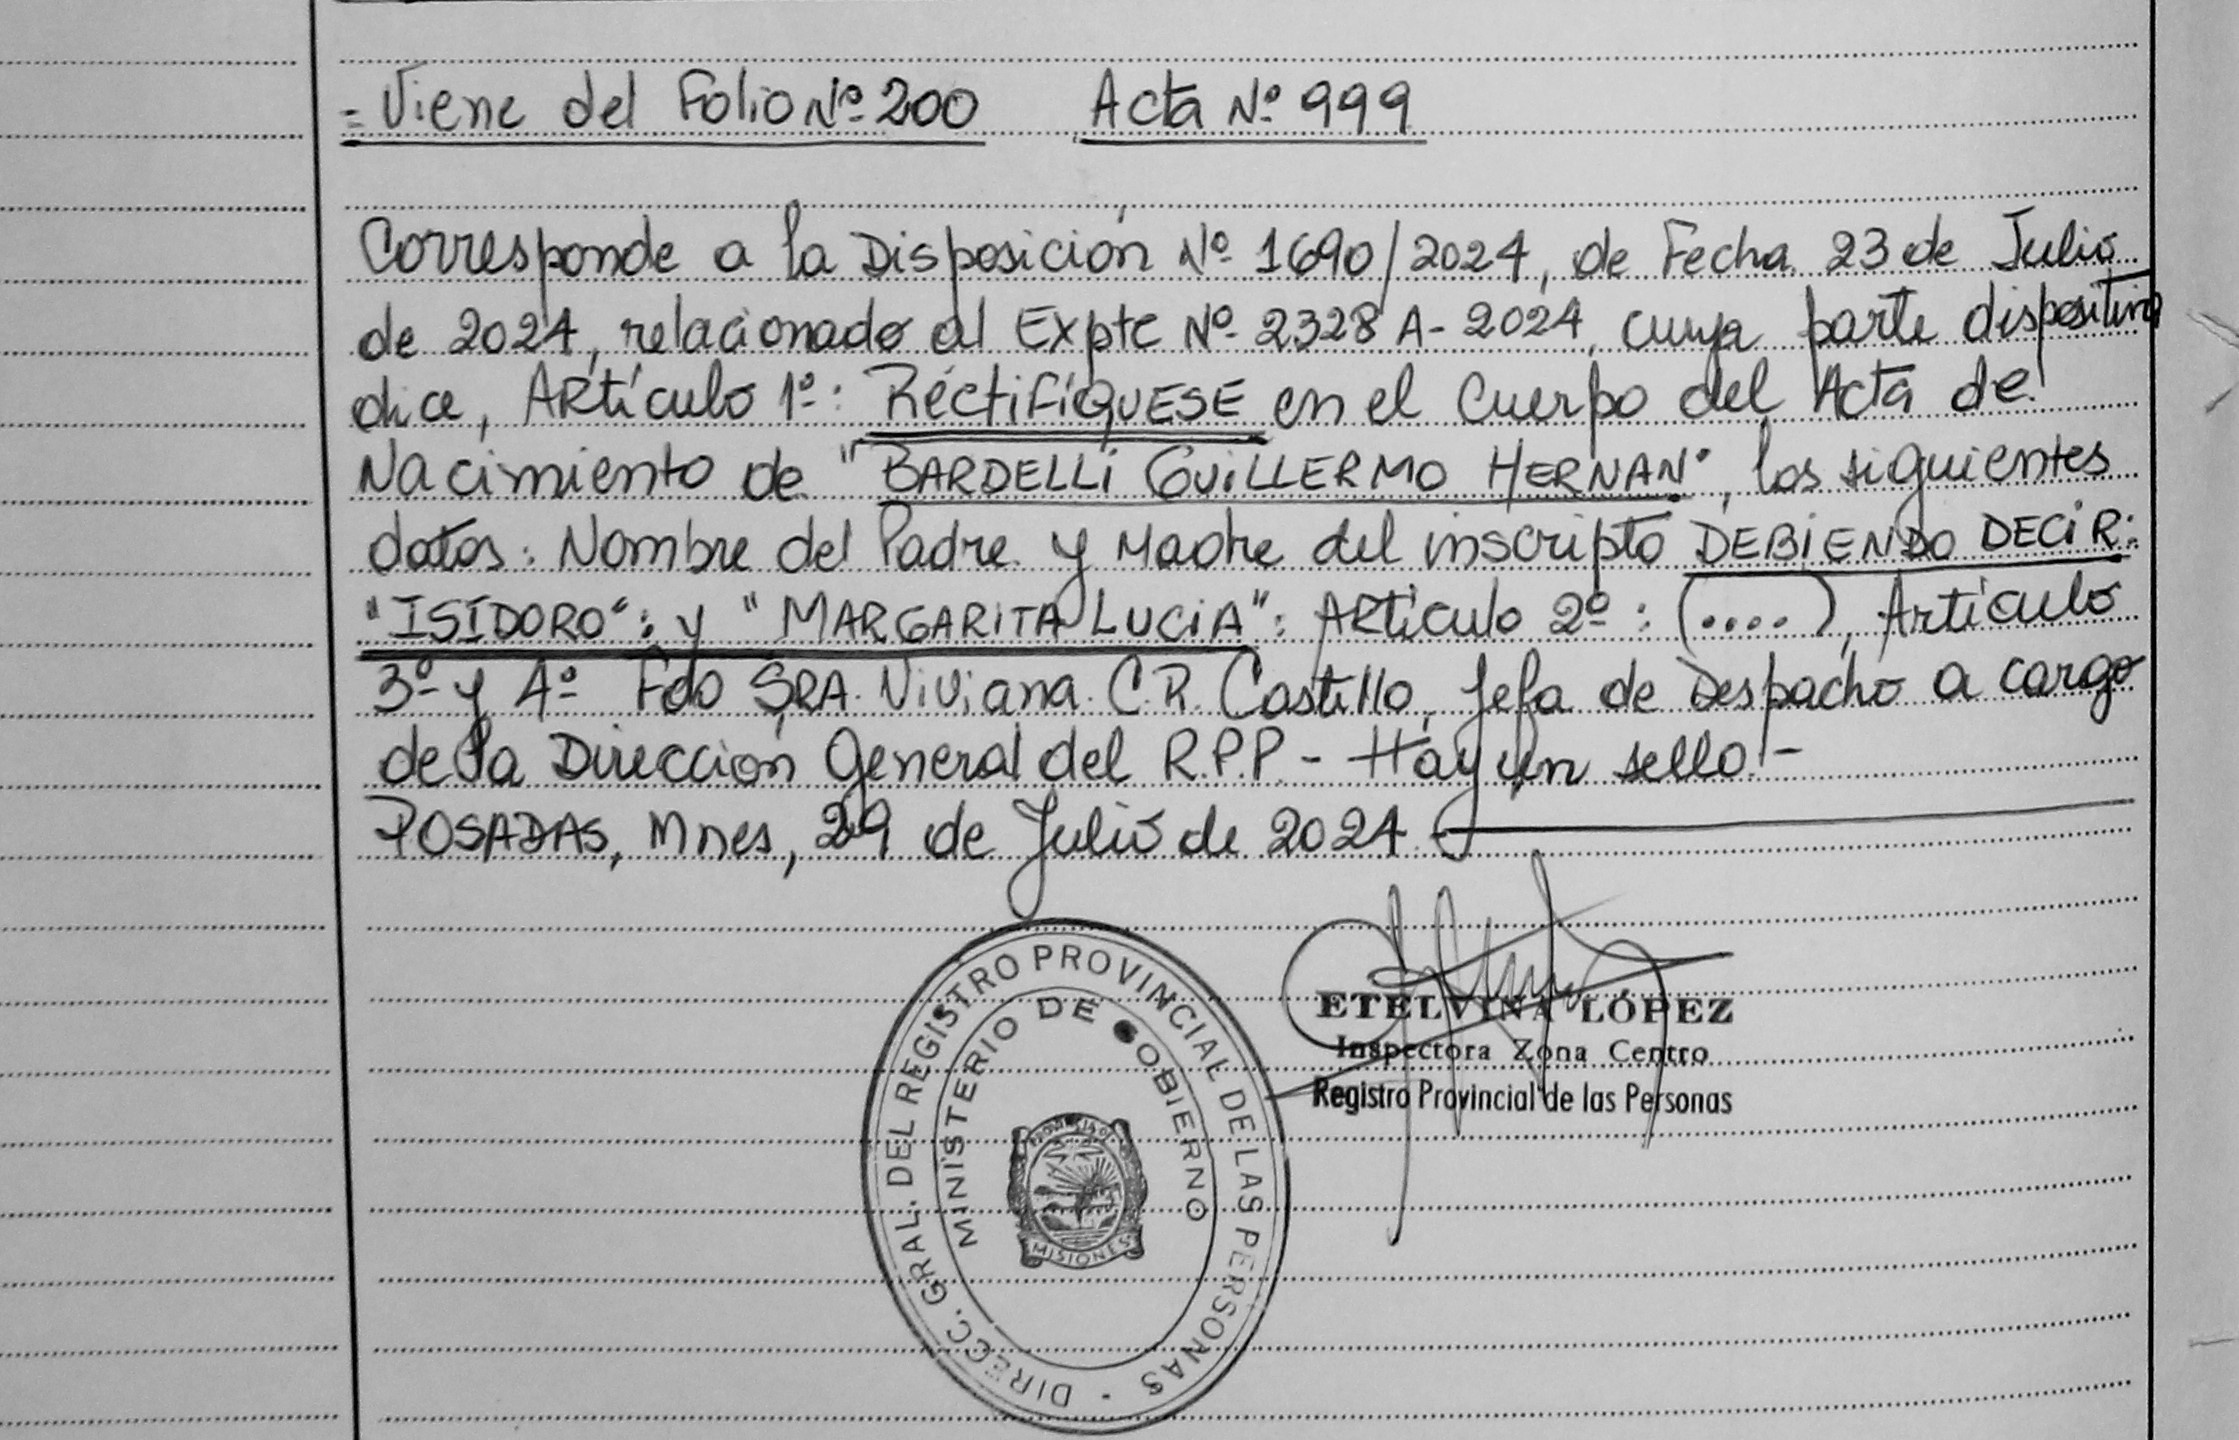 = Viene del Folio Nº 200 Acta Nº 999
Corresponde a la Disposición Nº 1690/2024, de Fecha 23 de Julio
de 2024, relacionado al Expte Nº 2328 A- 2024, cuya parte dispositiva
dice, Artículo 1º: RéctiFíQUESE en el Cuerpo del Acta de
Nacimiento de "BARDELLi GUiLLERMO HERNAN", los siguientes
datos: Nombre del Padre y Madre del inscripto DEBiENDO DECiR:
"ISIDORO": y "MARGARITA LUCiA": Artículo 2º: (....), Artículo
3º y 4º Fdo SRA. Viviana C.R. Castillo, Jefa de Despacho a cargo
de la Dirección General del R.P.P. - Hay un sello.-
POSADAS, Mnes, 29 de Julio de 2024
DIRECC. GRAL. DEL REGISTRO PROVINCIAL DE LAS PERSONAS
MINISTERIO DE GOBIERNO
PROVINCIA DE
MISIONES
ETELVINA LÓPEZ
Inspectora Zona Centro
Registro Provincial de las Personas